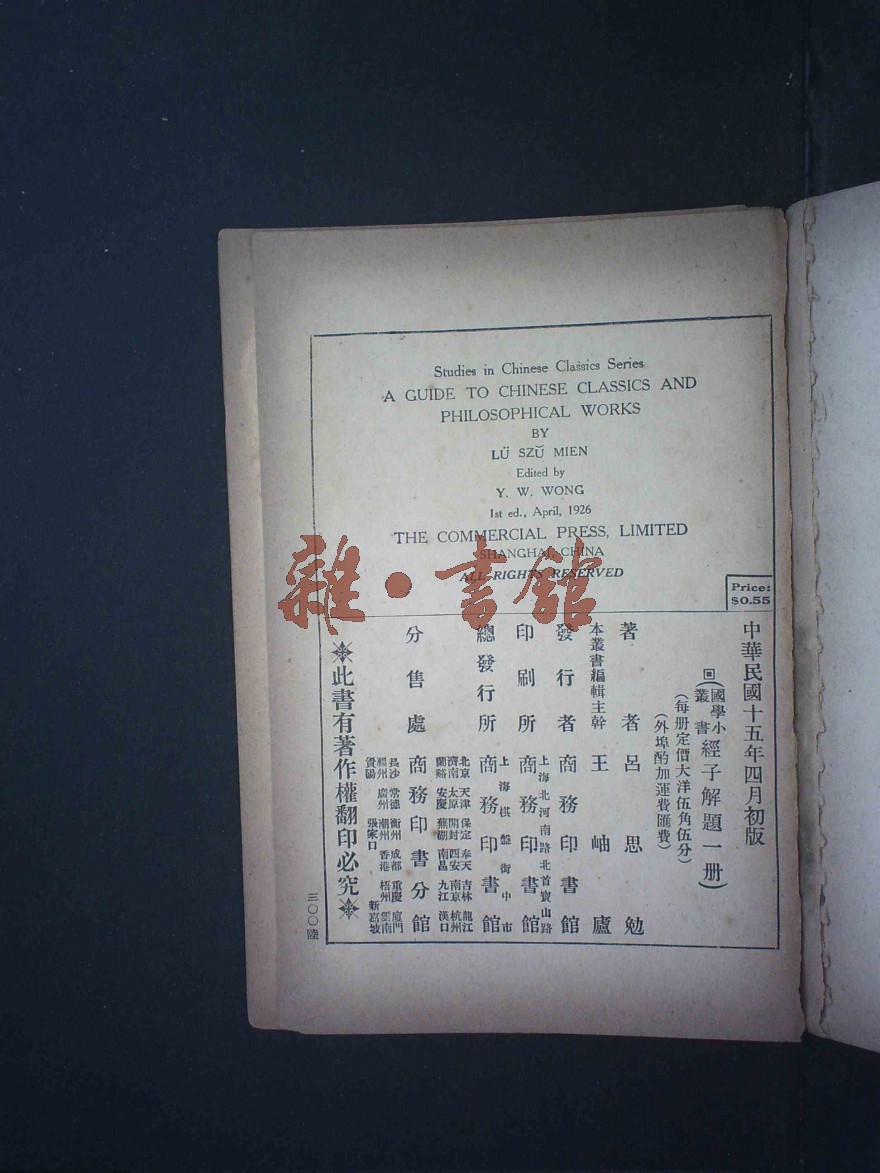 Studies in Chinese Classics Series
A GUIDE TO CHINESE CLASSICS AND
PHILOSOPHICAL WORKS
BY
LÜ SZŬ MIEN
Edited by
Y. W. WONG
1st ed., April, 1926
THE COMMERCIAL PRESS, LIMITED
SHANGHAI, CHINA
ALL RIGHTS RESERVED
Price:
$0.55
雜·書館
中華民國十五年四月初版
回(國學小叢書經子解題一册)
(每册定價大洋伍角伍分)
(外埠酌加運費匯費)
著者 呂思勉
本叢書編輯主幹 王岫廬
發行者 商務印書館
印刷所 上海北河南路北首寶山路 商務印書館
總發行所 上海棋盤街中市 商務印書館
分售處 商務印書分館
北京 天津 保定 奉天 吉林 龍江
濟南 太原 開封 西安 南京 杭州
蘭谿 安慶 蕪湖 南昌 九江 漢口
長沙 常德 衡州 成都 重慶 廈門
福州 廣州 潮州 香港 梧州 雲南
貴陽 張家口 新嘉坡
此書有著作權翻印必究
三〇〇陸